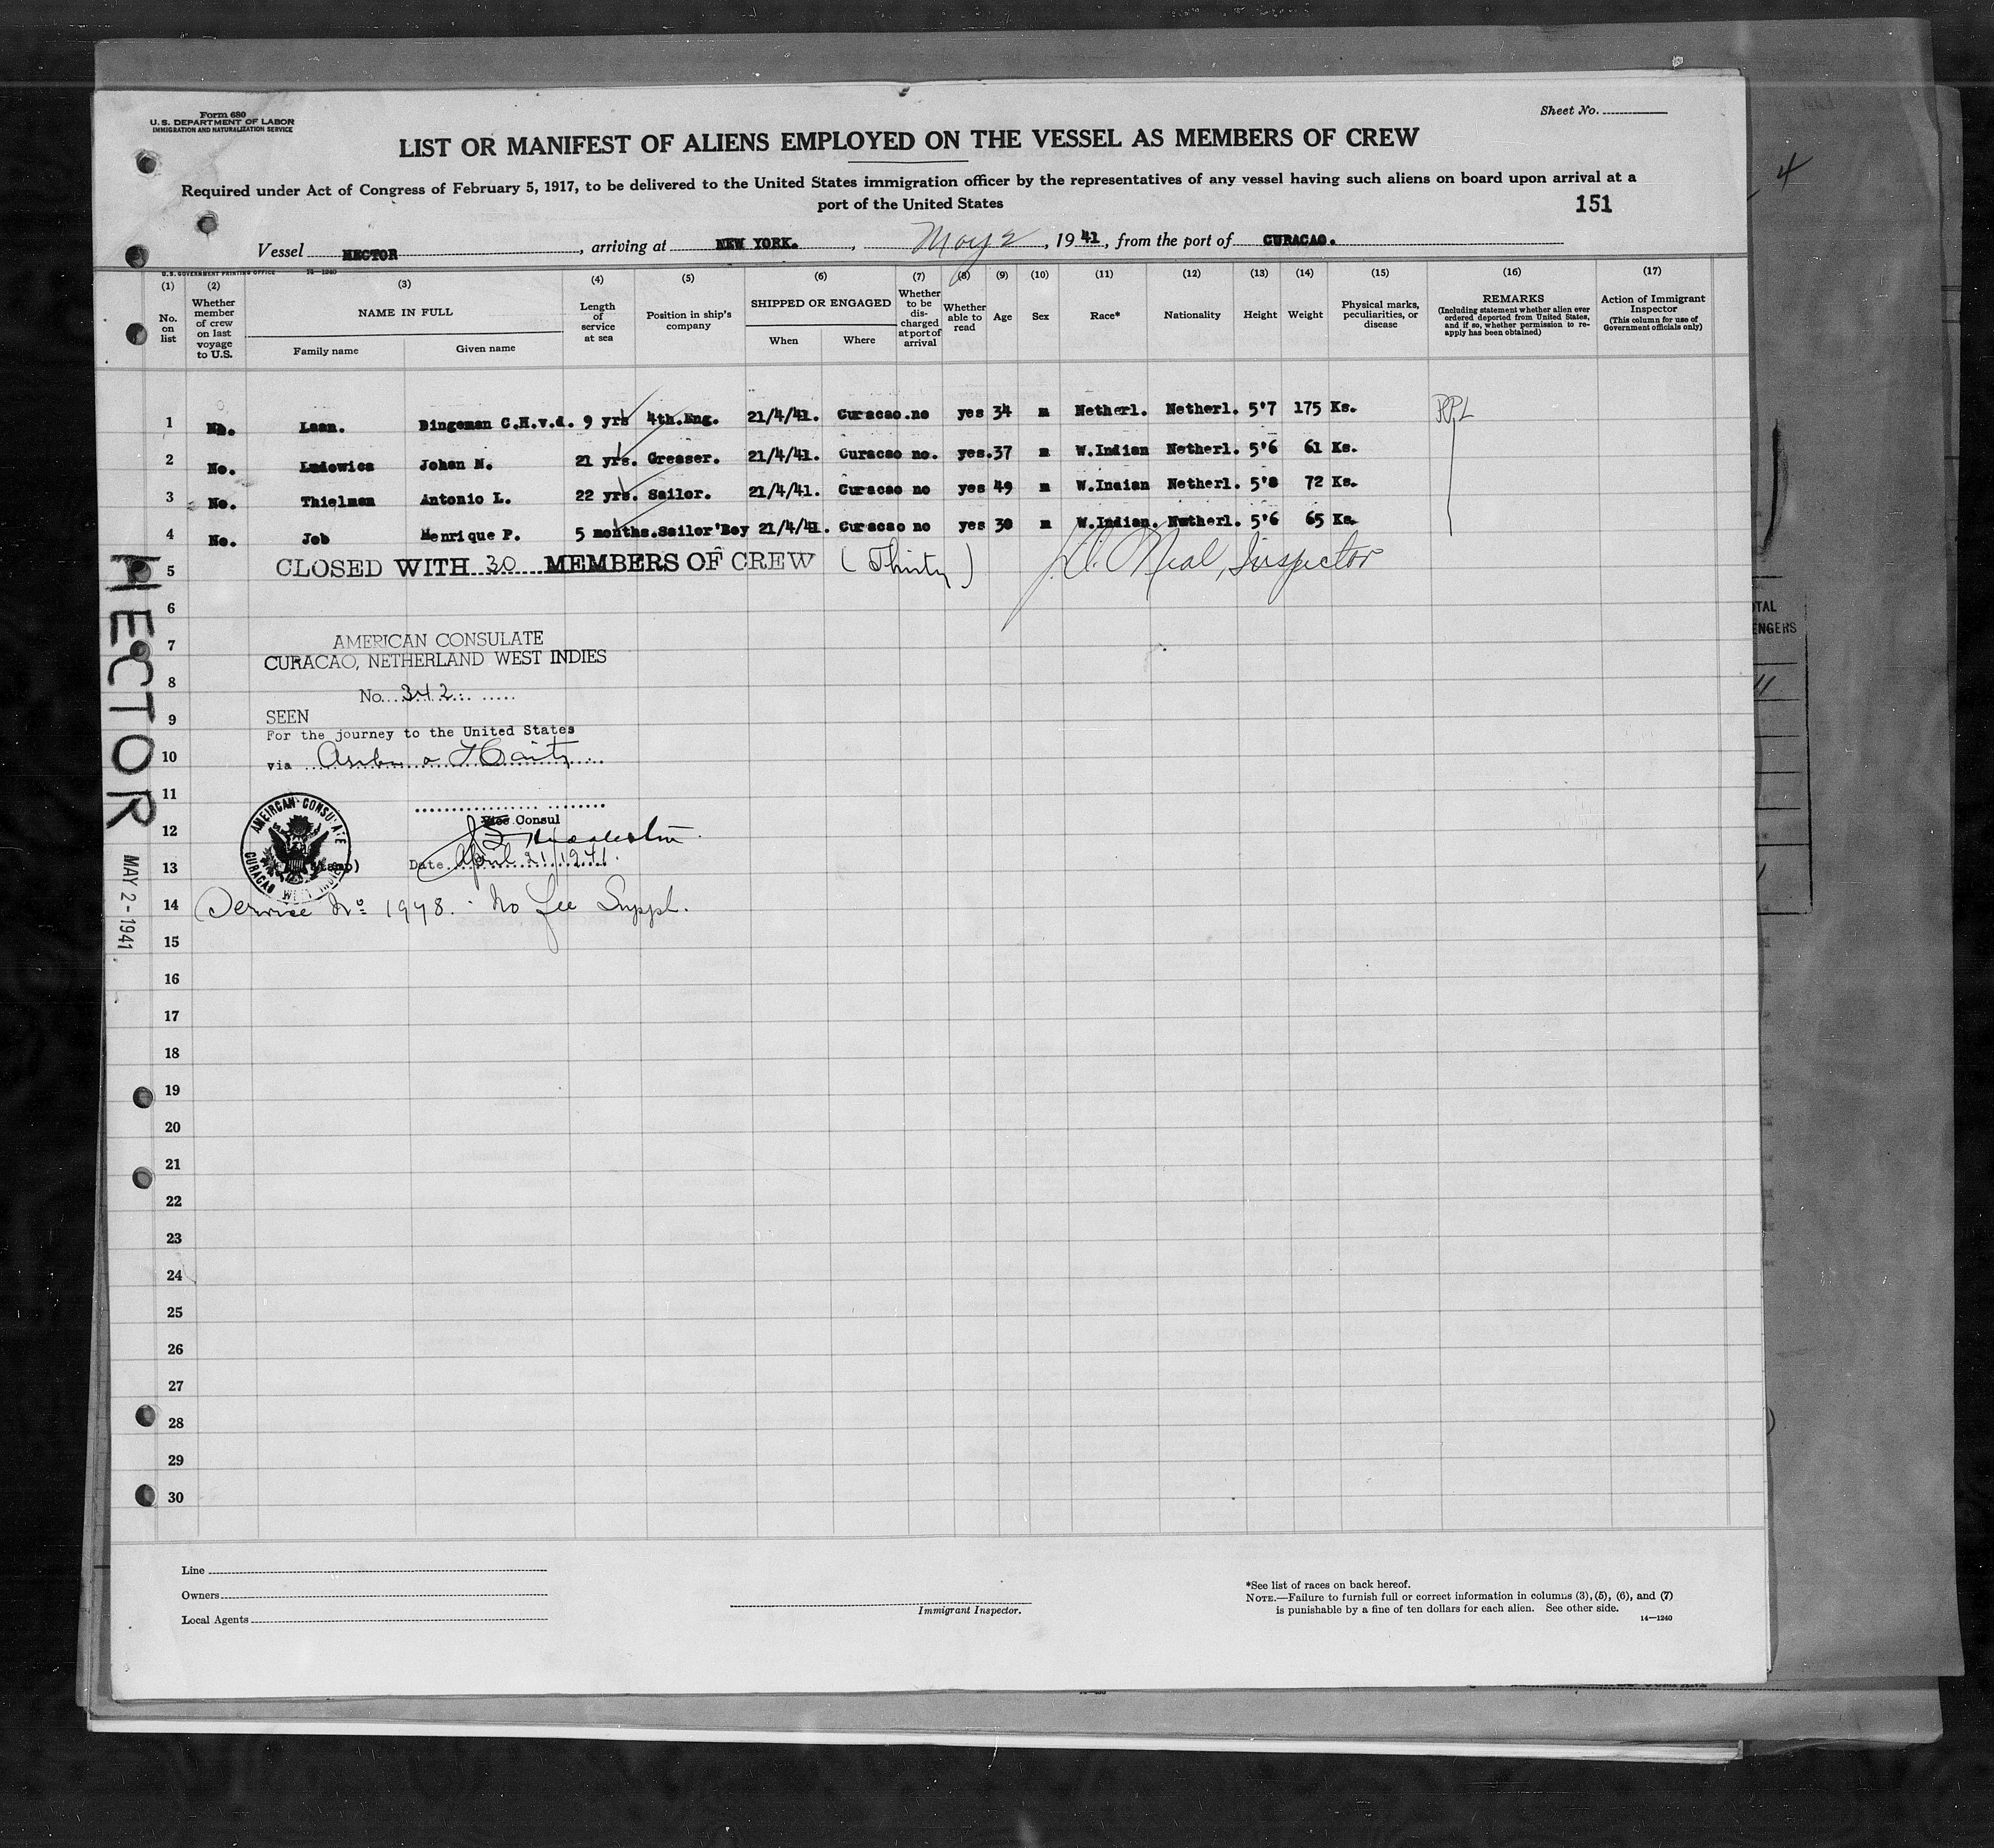 Form 680
U.S. DEPARTMENT OF LABOR
IMMIGRATION AND NATURALIZATION SERVICE
Sheet No.
LIST OR MANIFEST OF ALIENS EMPLOYED ON THE VESSEL AS MEMBERS OF CREW
Required under Act of Congress of February 5, 1917, to be delivered to the United States immigration officer by the representatives of any vessel having such aliens on board upon arrival at a
port of the United States
151
4
Vessel HECTOR, arriving at NEW YORK., May 2, 1941, from the port of CURACAO.
U.S. GOVERNMENT PRINTING OFFICE 14—1240
(1) (2) (3) (4) (5) (6) (7) (8) (9) (10) (11) (12) (13) (14) (15) (16) (17)
No. on list
Whether member of crew on last voyage to U.S.
NAME IN FULL
Family name
Given name
Length of service at sea
Position in ship's company
SHIPPED OR ENGAGED
When
Where
Whether to be discharged at port of arrival
Whether able to read
Age
Sex
Race*
Nationality
Height
Weight
Physical marks, peculiarities, or disease
REMARKS
(Including statement whether alien ever ordered deported from United States, and if so, whether permission to reapply has been obtained)
Action of Immigrant Inspector
(This column for use of Government officials only)
1 No. Laan. Dingeman C.H.v.d. 9 yrs 4th.Eng. 21/4/41. Curacao.no yes 34 m Netherl. Netherl. 5'7 175 Ks.
2 No. Ludowica Johan N. 21 yrs. Greaser. 21/4/41. Curacao no. yes.37 m W.Indian Netherl. 5'6 61 Ks.
3 No. Thielman Antonio L. 22 yrs. Sailor. 21/4/41. Curacao no yes 49 m W.Indian Netherl. 5'8 72 Ks.
4 No. Job Henrique P. 5 months.Sailor'Boy 21/4/41. Curacao no yes 30 m W.Indian. Netherl. 5'6 65 Ks.
5 CLOSED WITH 30 MEMBERS OF CREW (Thirty) Inspector
6
7 AMERICAN CONSULATE
CURACAO, NETHERLAND WEST INDIES
8 No. 342
9 SEEN
For the journey to the United States
10 via Aruba & Haiti
11
12 Vice Consul
13 Date April 21, 1941.
AMERICAN CONSULATE
CURACAO WEST INDIES
14 Service No 1948. - No fee Suppl.
15
16
17
18
19
20
21
22
23
24
25
26
27
28
29
30
HECTOR
MAY 2 - 1941
Line
Owners
Local Agents
Immigrant Inspector.
*See list of races on back hereof.
NOTE.—Failure to furnish full or correct information in columns (3), (5), (6), and (7)
is punishable by a fine of ten dollars for each alien. See other side.
14—1240